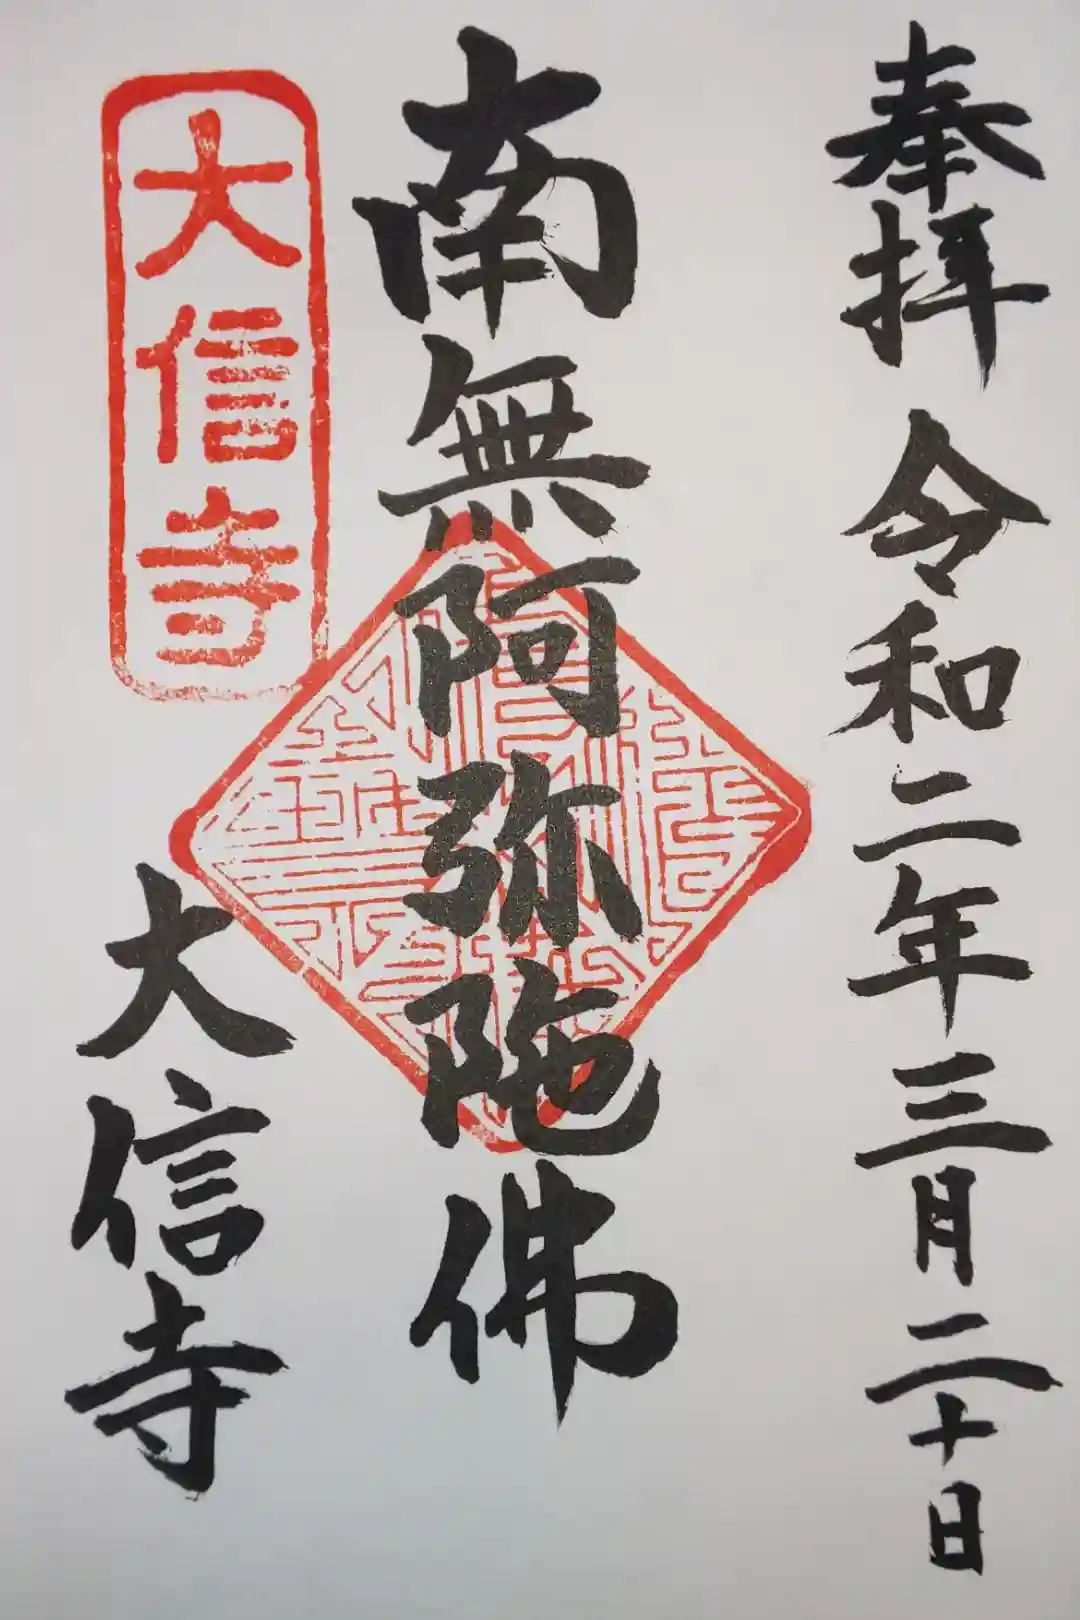 奉拝 令和二年三月二十日
南無阿弥陀佛
大信寺
大信寺